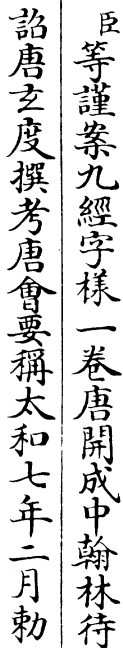 臣等謹案九經字樣一卷唐開成中翰林待
詔唐玄度撰考唐會要稱太和七年二月勅